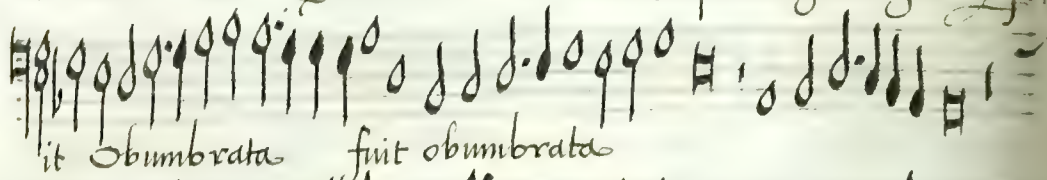 it Obumbrata fuit obumbrata